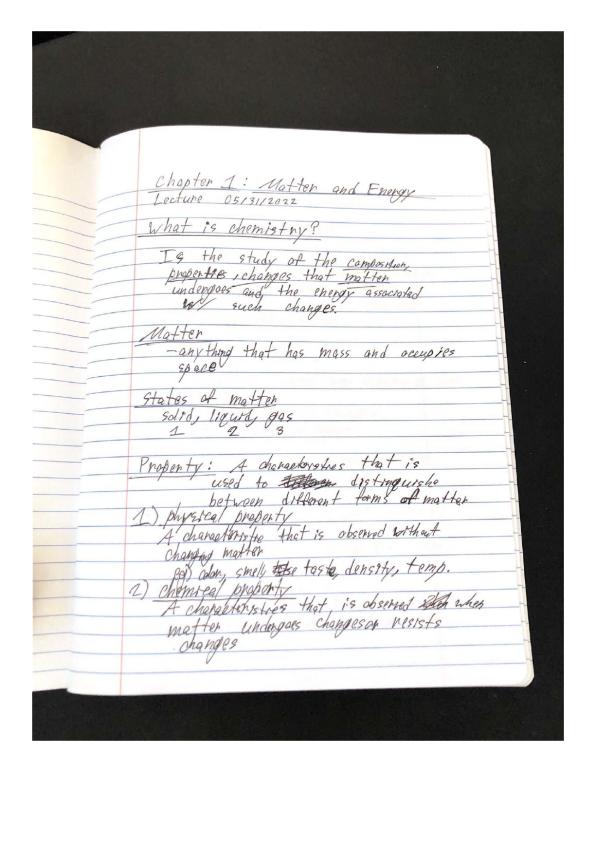 Chapter 1: Matter and Energy
Lecture 05/31/2022
What is chemistry?
Is the study of the composition,
properties, changes that matter
undergoes and, the energy associated
w/ such changes.
Matter
-anything that has mass and occupies
space
States of matter
solid, liquid, gas
1 2 3
Property: A characteristics that is
used to distinguishe
between different forms of matter
1) physical property
A characteristic that is observed without
changing matter
eg) color, smell, taste, density, temp.
2) chemical property
A characteristics that, is observed when
matter undergoes changes or resists
changes